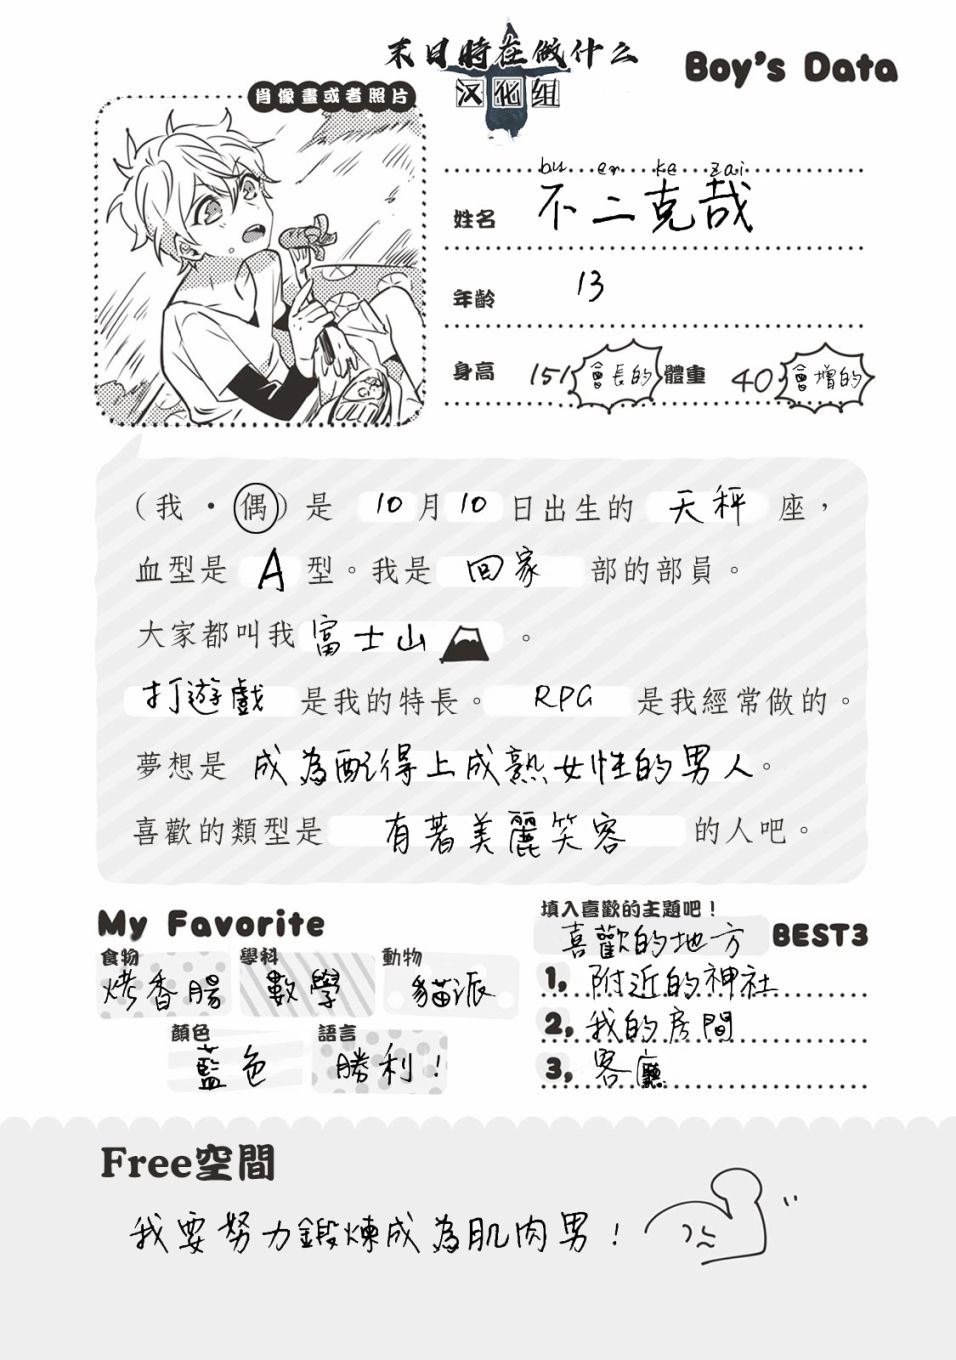 末日時在做什么
汉化组
Boy's Data
肖像畫或者照片
bu er ke zai
姓名 不二克哉
年齡 13
身高 151 會長的 體重 40 會增的
（我・偶）是 10月10日出生的 天秤 座，
血型是 A 型。我是 回家 部的部員。
大家都叫我 富士山 。
打遊戲 是我的特長。 RPG 是我經常做的。
夢想是 成為配得上成熟女性的男人。
喜歡的類型是 有著美麗笑容 的人吧。
My Favorite
食物 學科 動物
烤香腸 數學 貓派
顏色 語言
藍色 勝利！
填入喜歡的主題吧！
喜歡的地方 BEST3
1, 附近的神社
2, 我的房間
3, 客廳
Free空間
我要努力鍛煉成為肌肉男！